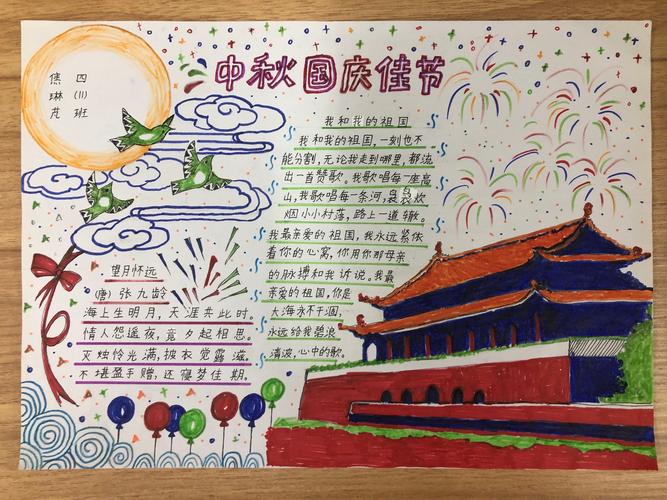 中秋国庆佳节
焦琳芃
四(11)班
我和我的祖国
我和我的祖国,一刻也不
能分割,无论我走到哪里,都流
出一首赞歌,我歌唱每一座高
山,我歌唱每一条河,袅袅炊
烟小小村落,路上一道辙。
我最亲爱的祖国,我永远紧依
着你的心窝,你用你那母亲
的脉搏和我诉说。我最
亲爱的祖国,你是
大海永不干涸,
永远给我碧浪
清波,心中的歌。
望月怀远
(唐)张九龄
海上生明月,天涯共此时。
情人怨遥夜,竟夕起相思。
灭烛怜光满,披衣觉露滋。
不堪盈手赠,还寝梦佳期。